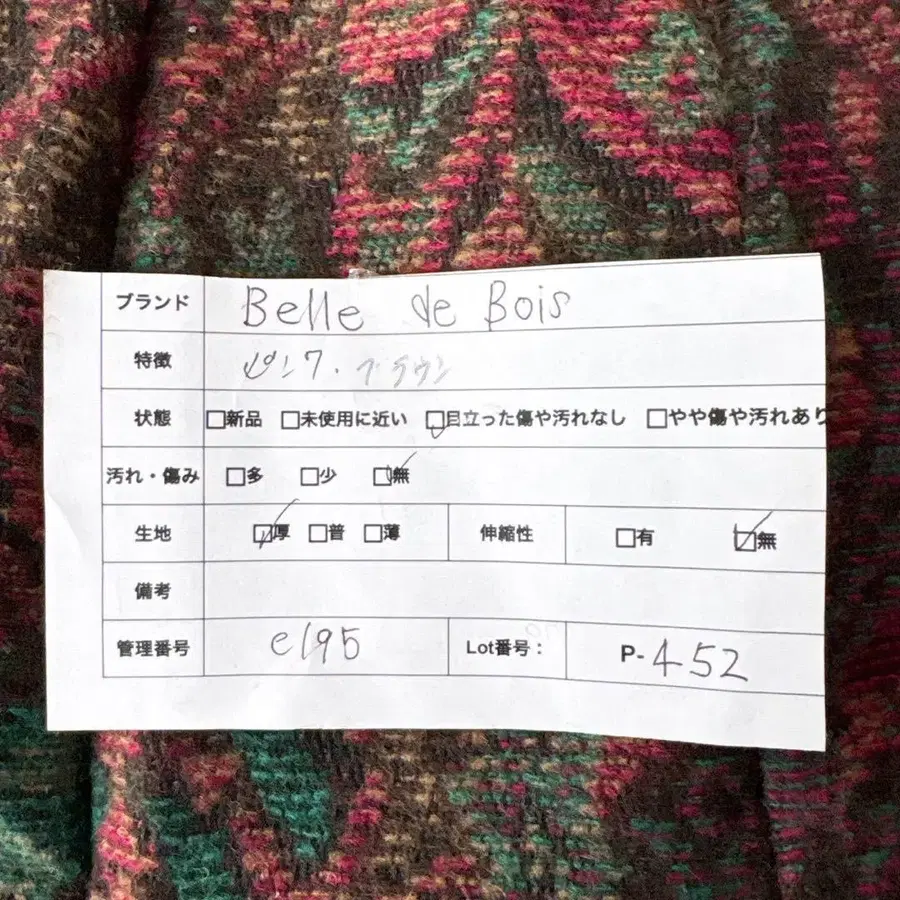 ブランド Belle de Bois
特徴 ピンク・ブラウン
状態 □新品 □未使用に近い ☑目立った傷や汚れなし □やや傷や汚れあり
汚れ・傷み □多 □少 ☑無
生地 ☑厚 □普 □薄 伸縮性 □有 ☑無
備考
管理番号 e195 Lot番号： P-452